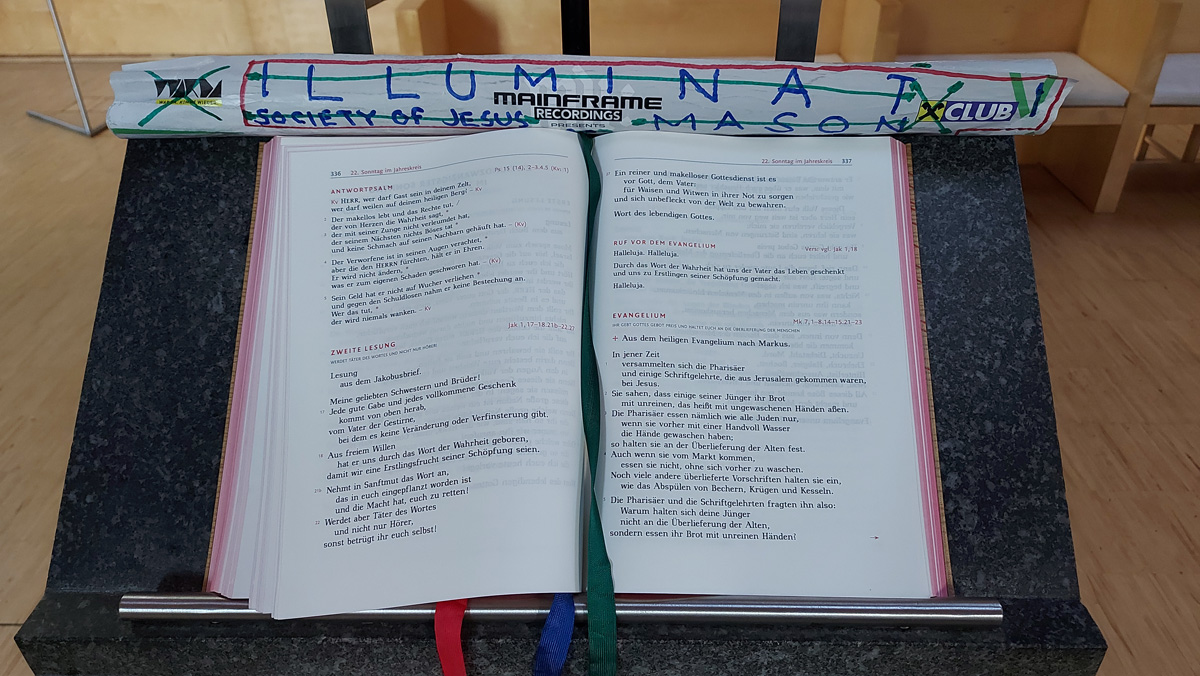 ILLUMINAT
MAINFRAME
RECORDINGS
PRESENTS
SOCIETY OF JESUS
MASON
CLUB
336 22. Sonntag im Jahreskreis Ps 15 (14), 2–3.4.5 (Kv: 1)
ANTWORTPSALM
Kv HERR, wer darf Gast sein in deinem Zelt,
wer darf weilen auf deinem heiligen Berg? – Kv
Der makellos lebt und das Rechte tut, /
der von Herzen die Wahrheit sagt, *
der mit seiner Zunge nicht verleumdet hat,
der seinem Nächsten nichts Böses tat *
und keine Schmach auf seinen Nachbarn gehäuft hat. – (Kv)
Der Verworfene ist in seinen Augen verachtet, *
aber die den HERRN fürchten, hält er in Ehren.
Er wird nicht ändern, *
was er zum eigenen Schaden geschworen hat. – (Kv)
Sein Geld hat er nicht auf Wucher verliehen *
und gegen den Schuldlosen nahm er keine Bestechung an.
Wer das tut, *
der wird niemals wanken. – Kv
ZWEITE LESUNG Jak 1, 17–18.21b–22.27
WERDET TÄTER DES WORTES UND NICHT NUR HÖRER
Lesung
aus dem Jakobusbrief.
Meine geliebten Schwestern und Brüder!
17 Jede gute Gabe und jedes vollkommene Geschenk
kommt von oben herab,
vom Vater der Gestirne,
bei dem es keine Veränderung oder Verfinsterung gibt.
18 Aus freiem Willen
hat er uns durch das Wort der Wahrheit geboren,
damit wir eine Erstlingsfrucht seiner Schöpfung seien.
21b Nehmt in Sanftmut das Wort an,
das in euch eingepflanzt worden ist
und die Macht hat, euch zu retten!
22 Werdet aber Täter des Wortes
und nicht nur Hörer,
sonst betrügt ihr euch selbst!
22. Sonntag im Jahreskreis 337
27 Ein reiner und makelloser Gottesdienst ist es
vor Gott, dem Vater:
für Waisen und Witwen in ihrer Not zu sorgen
und sich unbefleckt von der Welt zu bewahren.
Wort des lebendigen Gottes.
RUF VOR DEM EVANGELIUM Vers: vgl. Jak 1, 18
Halleluja. Halleluja.
Durch das Wort der Wahrheit hat uns der Vater das Leben geschenkt
und uns zu Erstlingen seiner Schöpfung gemacht.
Halleluja.
EVANGELIUM Mk 7, 1–8.14–15.21–23
IHR GEBT GOTTES GEBOT PREIS UND HALTET EUCH AN DIE ÜBERLIEFERUNG DER MENSCHEN
+ Aus dem heiligen Evangelium nach Markus.
In jener Zeit
versammelten sich die Pharisäer
und einige Schriftgelehrte, die aus Jerusalem gekommen waren,
bei Jesus.
Sie sahen, dass einige seiner Jünger ihr Brot
mit unreinen, das heißt mit ungewaschenen Händen aßen.
Die Pharisäer essen nämlich wie alle Juden nur,
wenn sie vorher mit einer Handvoll Wasser
die Hände gewaschen haben;
so halten sie an der Überlieferung der Alten fest.
Auch wenn sie vom Markt kommen,
essen sie nicht, ohne sich vorher zu waschen.
Noch viele andere überlieferte Vorschriften halten sie ein,
wie das Abspülen von Bechern, Krügen und Kesseln.
Die Pharisäer und die Schriftgelehrten fragten ihn also:
Warum halten sich deine Jünger
nicht an die Überlieferung der Alten,
sondern essen ihr Brot mit unreinen Händen?
→